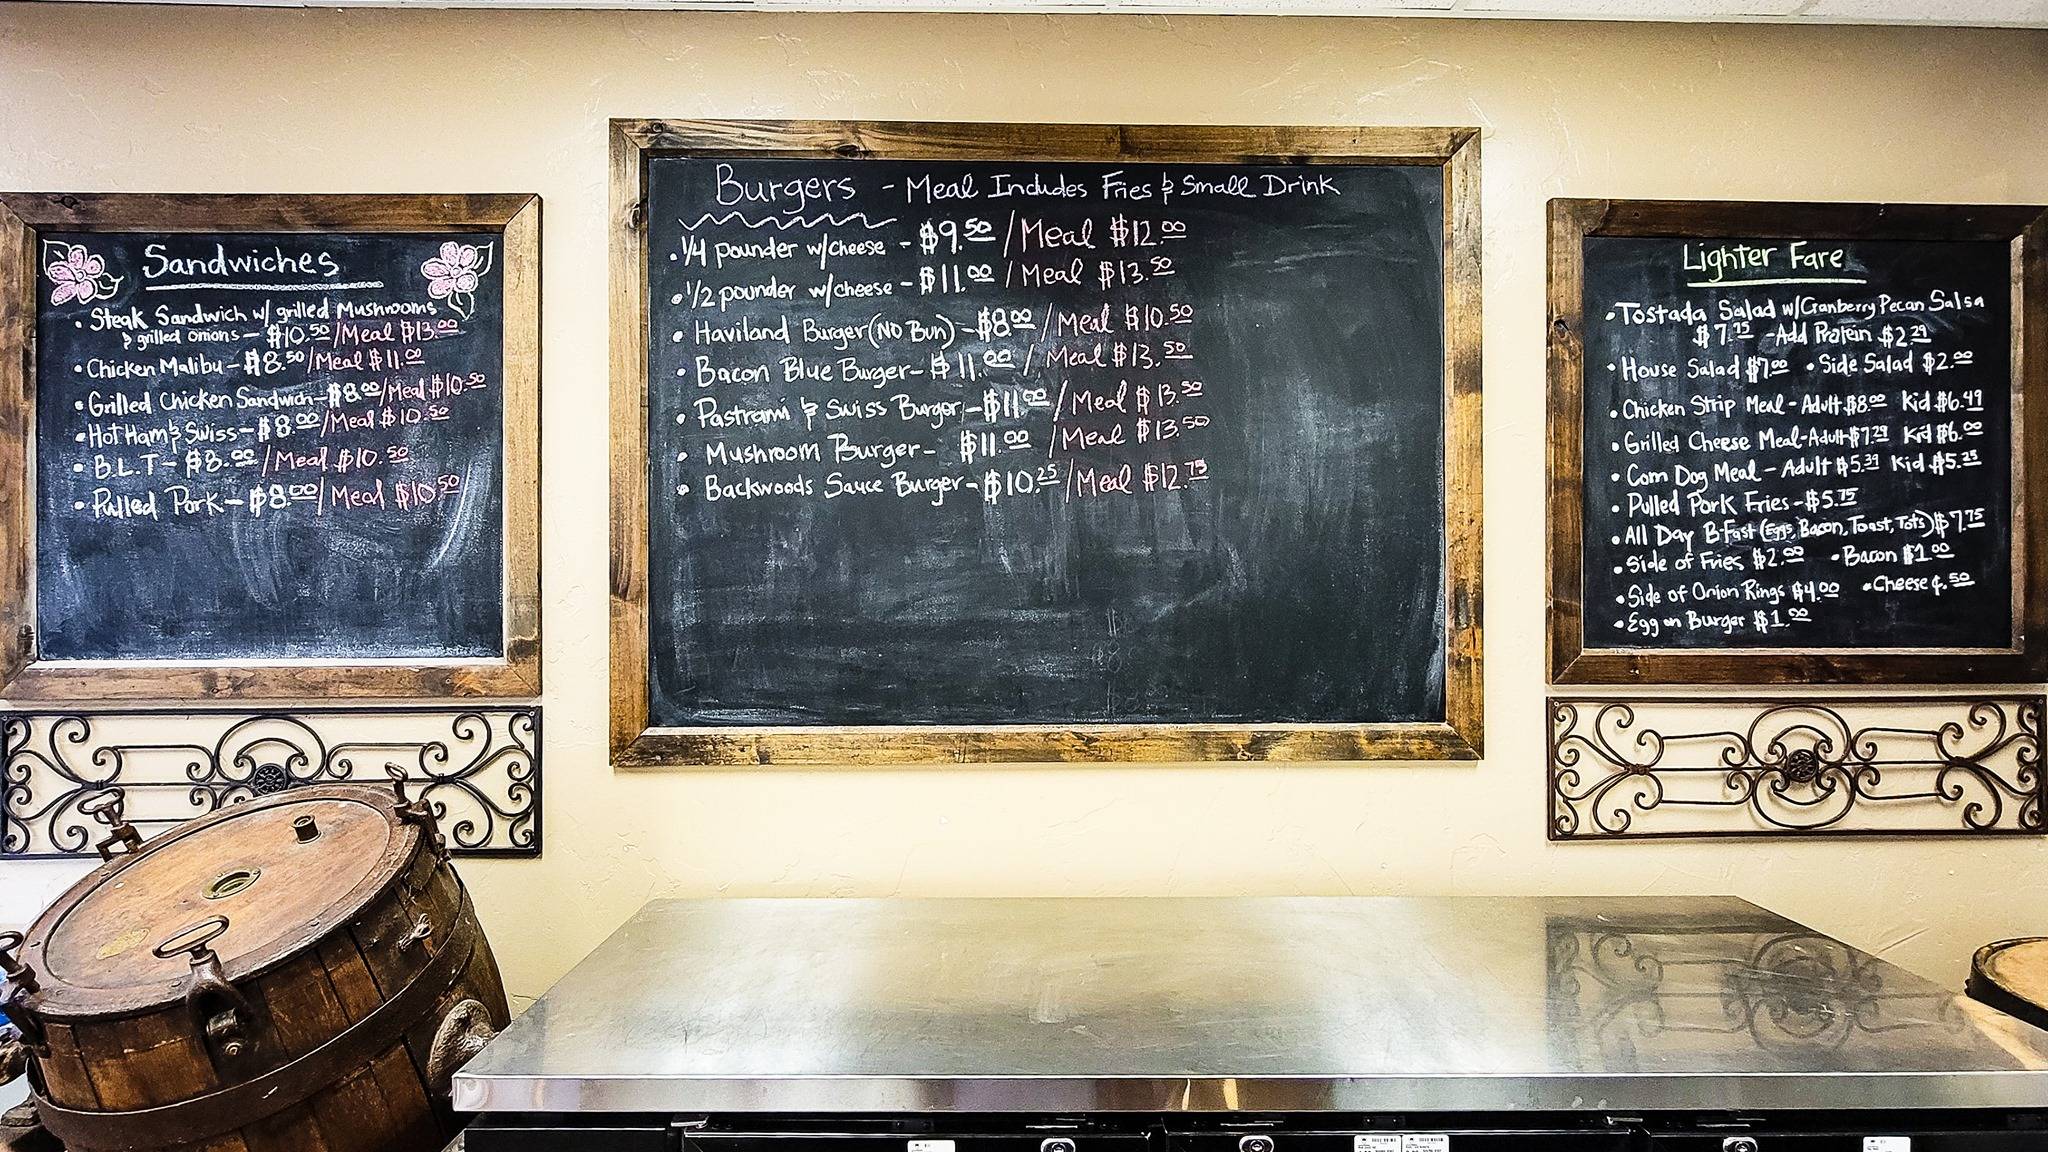 Sandwiches
• Steak Sandwich w/ grilled Mushrooms
& grilled onions - $10.50/Meal $13.00
• Chicken Malibu - $8.50/Meal $11.00
• Grilled Chicken Sandwich - $8.00/Meal $10.50
• Hot Ham & Swiss - $8.00/Meal $10.50
• B.L.T - $8.00/Meal $10.50
• Pulled Pork - $8.00/Meal $10.50
Burgers - Meal Includes Fries & Small Drink
• 1/4 pounder w/cheese - $9.50/Meal $12.00
• 1/2 pounder w/cheese - $11.00/Meal $13.50
• Haviland Burger (No Bun) - $8.00/Meal $10.50
• Bacon Blue Burger - $11.00/Meal $13.50
• Pastrami & Swiss Burger - $11.00/Meal $13.50
• Mushroom Burger - $11.00/Meal $13.50
• Backwoods Sauce Burger - $10.25/Meal $12.75
Lighter Fare
• Tostada Salad w/Cranberry Pecan Salsa
$7.75 - Add Protein $2.29
• House Salad $7.00 • Side Salad $2.00
• Chicken Strip Meal - Adult $8.00 Kid $6.49
• Grilled Cheese Meal - Adult $7.29 Kid $6.00
• Corn Dog Meal - Adult $5.39 Kid $5.25
• Pulled Pork Fries - $5.75
• All Day B-Fast (Eggs, Bacon, Toast, Tots) $7.75
• Side of Fries $2.00 • Bacon $1.00
• Side of Onion Rings $4.00 • Cheese ¢.50
• Egg on Burger $1.00